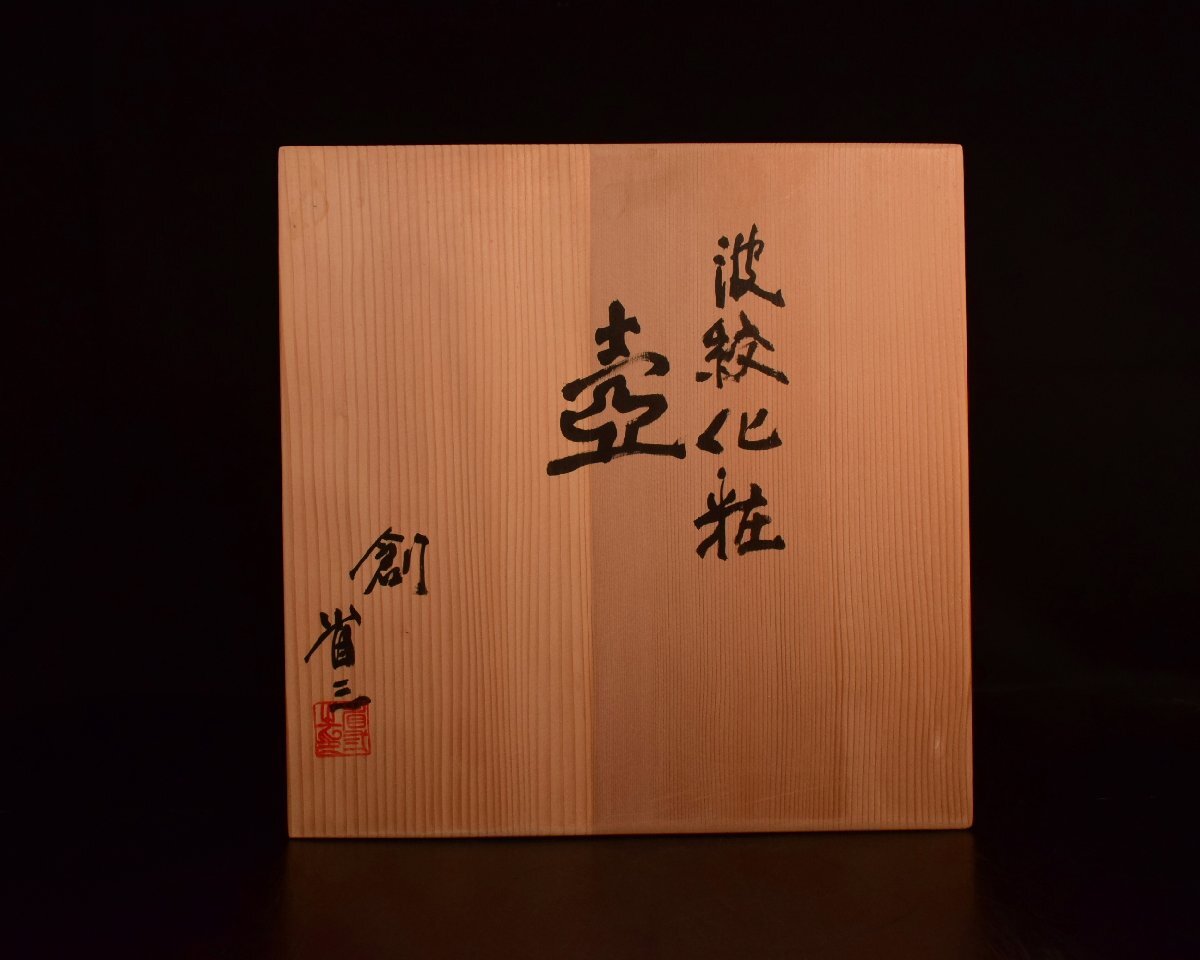 波紋化粧
壺
創
省三